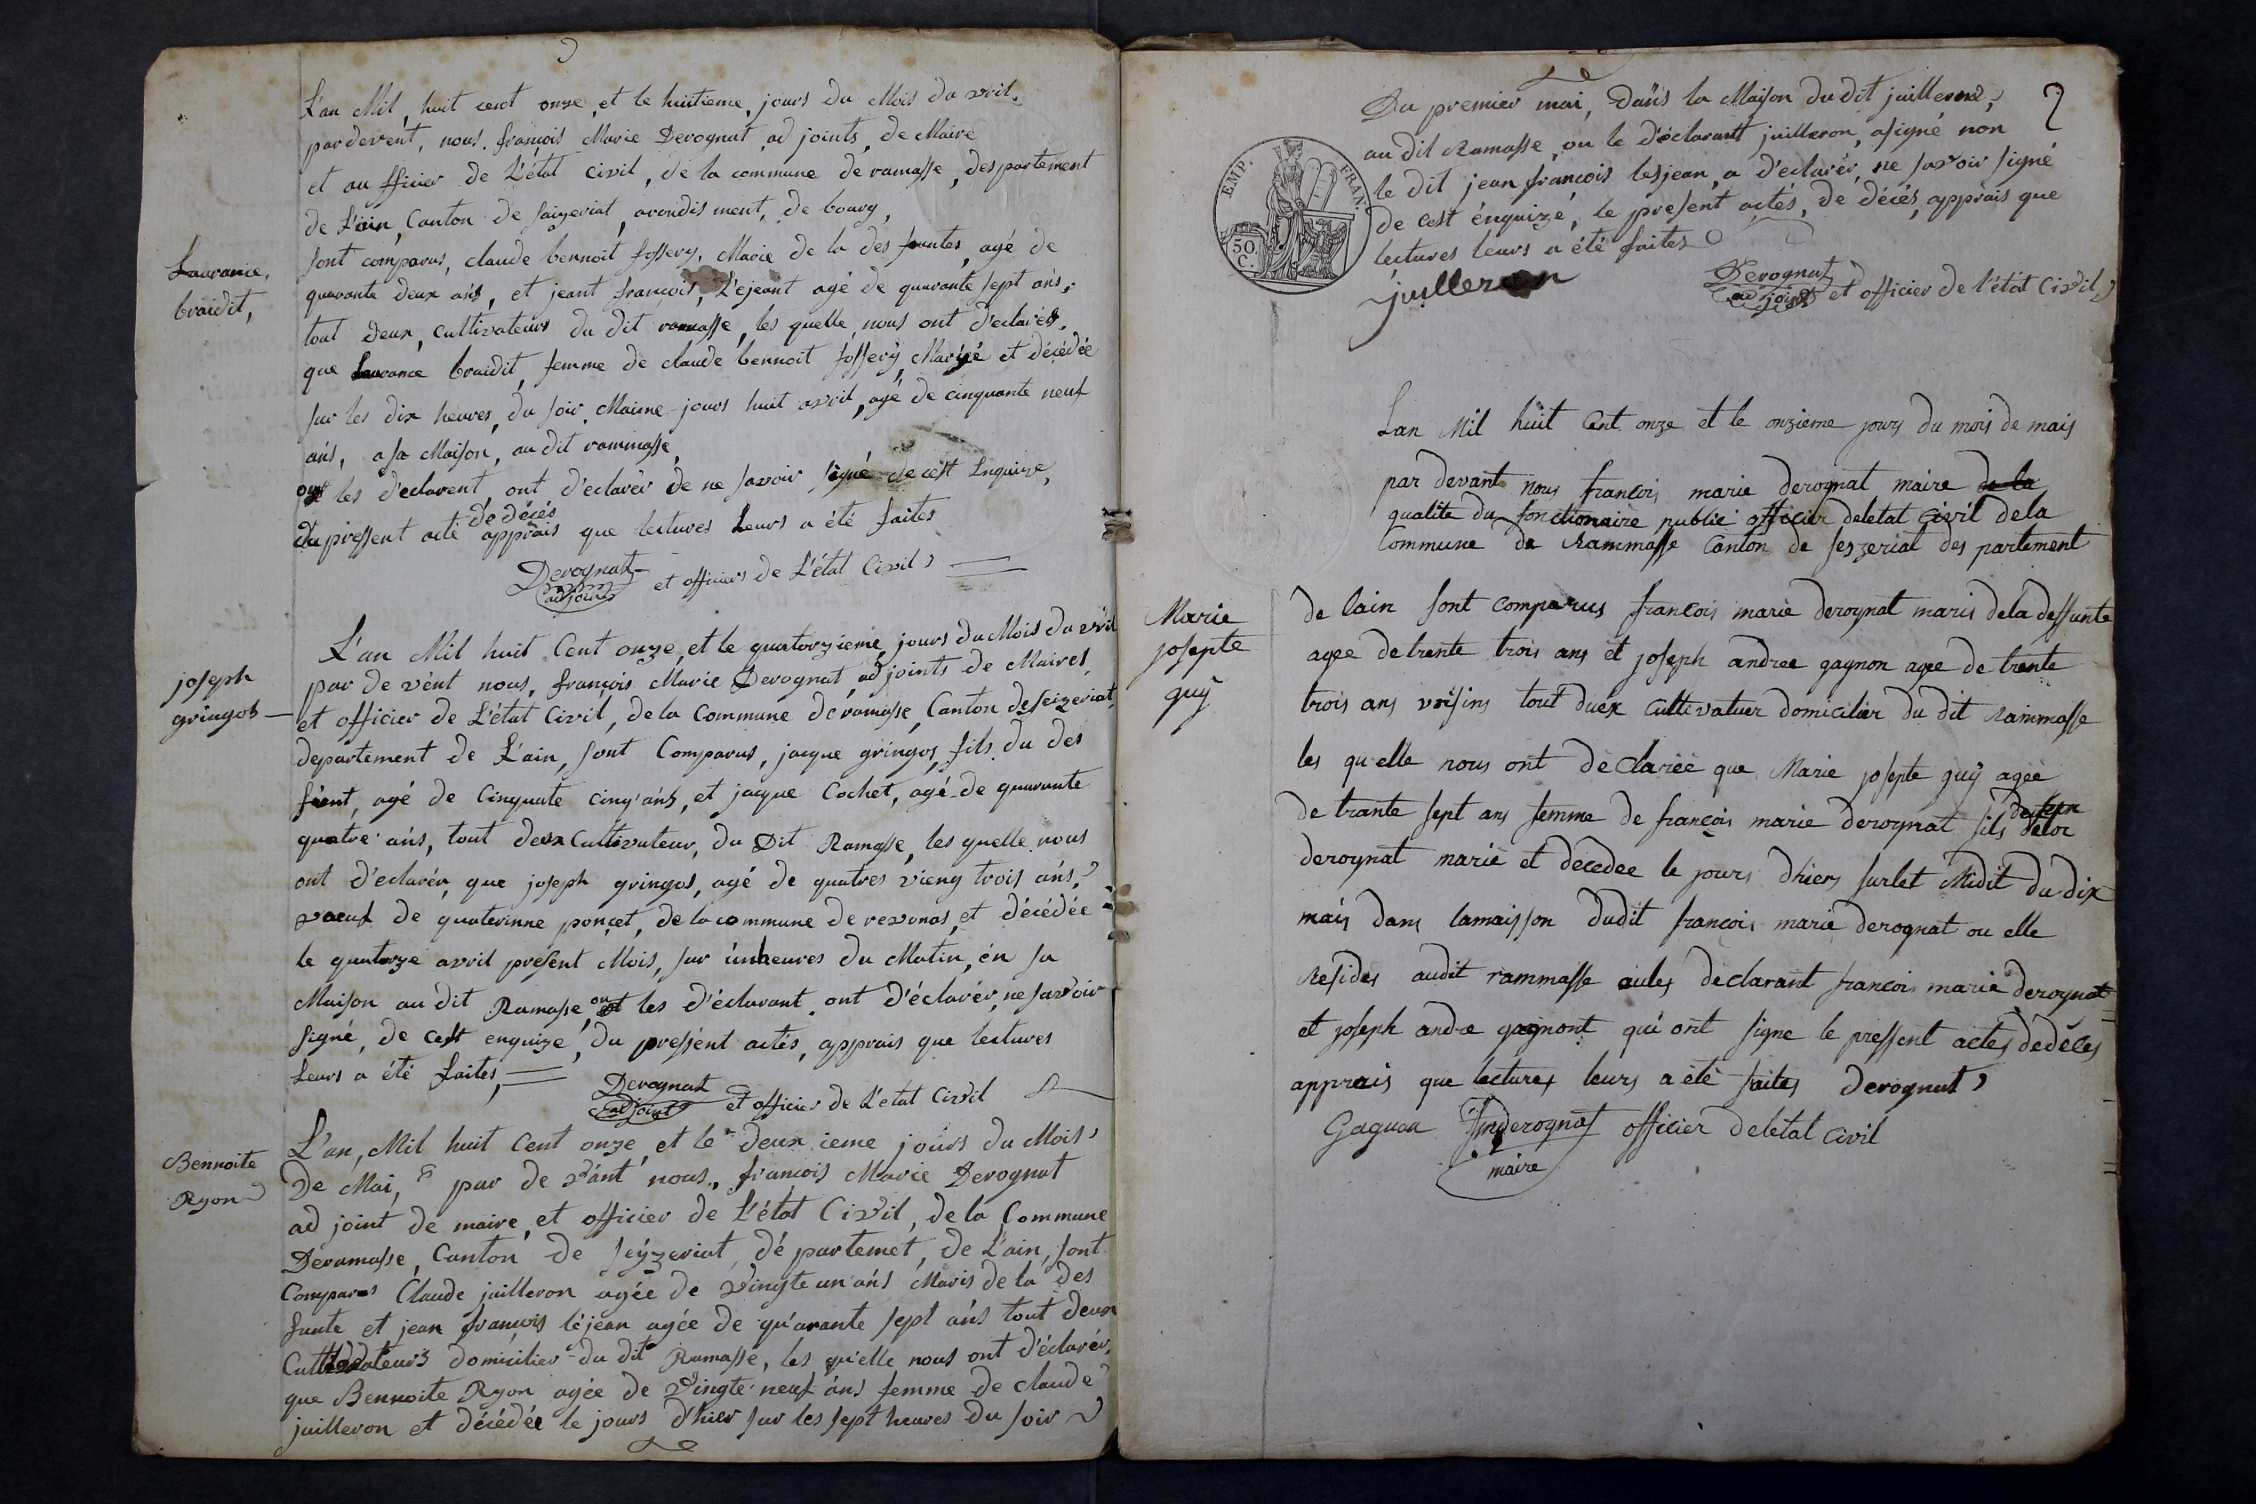 L'an Mil, huit cent onze, et le huitieme, jours du Mois da vril,
pardevent, nous, françois Marie Derognat, ad joints, de Maire
et au fficier de L'état civil, de la commune de ramasse, despartement
de L'ain, Canton de saizeriat, arondis ment, de bourg,
sont comparus, claude bennoit fossery, Marie de la des funtes, agé de
quarante deux ans, et jeant francois, L'ejeant agé de quarante sept ans,
tout deux, cultivateurs du dit ramasse, les quelle, nous ont d'eclarér,
que Laurance braidit, femme de claude bennoit fossery, Mariée et décédée
sur les dix heures, du soir, Maime jours huit avril, agé de cinquante neuf
ans, a sa Maison, au dit rammasse,
ont les d'eclarent, ont d'eclarér de ne savoir signé de cest Enquize,
du pressent acte de décés apprais que lectures Leurs a été faites
Derognat et officiers de L'état Civil
adjoint
Laurance,
braidit,
L'an Mil huit Cent onze, et le quatorzieme, jours du Mois da vril
par de vént nous, françois Marie Derognat, ad joints de Maires
et officier de L'état Civil, de la Commune de ramasse, Canton de seizeriat,
departement de L'ain, sont Comparus, jacque gringos, fils du des
fient, agé de Cinquate cinq ans, et jacque Cochet, agé de quarante
quatre ans, tout deux Cultivateur, du Dit Ramasse, les quelle nous
ont d'eclarér, que joseph gringos, agé de quatres vieng trois ans,
vaeuf de quaterinne ponçet, de la commune de revonas, et décédée
le quatorze avril présent Mois, sur únheures du Matin, én sa
Maison au dit Ramasse, ou les d'éclarant ont d'éclarér, ne savoir
signé, de cest enquize, du pressént actés, apprais que lectures
Leurs a été faites,
Derognat et officier de L'etat Civil
adjoint
joseph
gringos
L'an, Mil huit Cent onze, et le deux ieme jours du Mois
De Mai, par de vant nous, francois Marie Derognat
ad joint de maire, et officier de L'état Civil, de la Commune
Deramasse, Canton de seyzeriat, dé partemet, de L'ain, sont
Comparus Claude juilleron agée de vingte un ans Maris de la des
funte et jean francois léjean agée de qu'arante sept ans tout deux
Cultivateurs domicilier du dit Ramasse, les qu'elle nous ont d'éclarér,
que Bennoite Ryon agée de vingte neuf ans femme de claude
juilleron et décédée le jours d'hier sur les sept heures du soir
Bennoite
Ryon
2
Du premier mai, Dans la Maison du dit juilleron,
au dit Ramasse, ou le déclarant juilleron, asigné non
le dit jean françois lesjean, a d'eclarér, ne savoir signé
de cest énquizé, le présent actés, de décés, appräis que
lectures leurs a été faites
juilleron
Derognat et officier de l'état Civil
adjoint
EMP. FRAN.
50
C.
Lan Mil huit Cent onze et le onzieme jours du mois de mais
par devant nous françois marie derognat maire de la
qualite du fonctionaire public officier deletat civil dela
Commune de Rammasse Canton de seszeriat des partement
de lain sont comparus françois marie derognat maris dela deffunte
agee de trente trois ans et joseph andree gagnon agee de trente
trois ans voisins tout duex Cultivatuer domicilier du dit Rammasse
les qu'elle nous ont declarée que Marie josepte guÿ agée
de trante sept ans femme de françois marie derognat fils
derognat marié et decedee le jours dhiers surlet Midit du dix
mais dans lamaisson dudit françois marie derognat ou elle
Resides audit rammasse aules declarant francois marie derognat
et joseph andre gagnont qui ont signe le pressent actes dedèces
apprais que lectures leurs a été faites Derognat
Gagnon fmderognat officier deletat civil
maire
Marie
josepte
guÿ